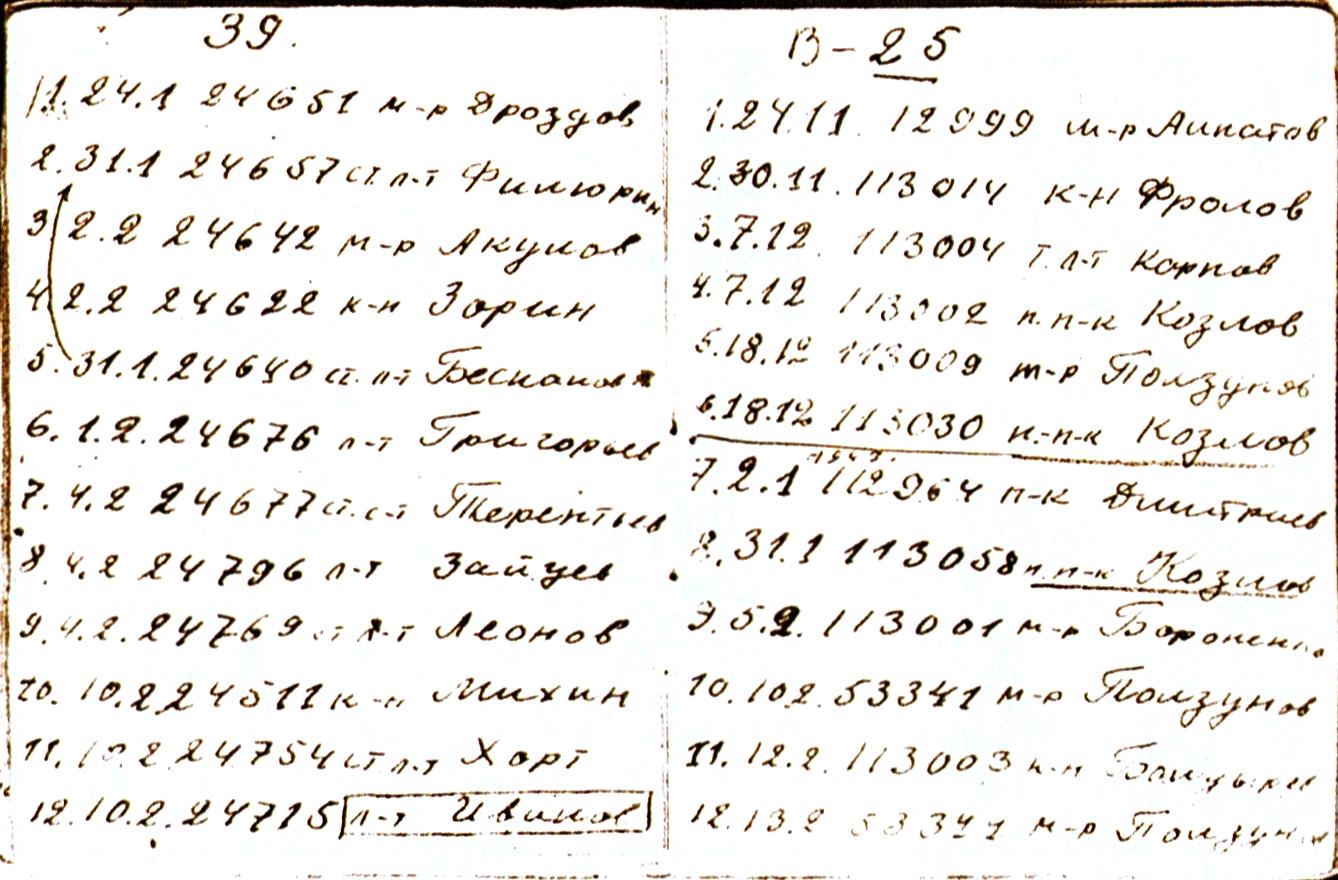 39.
1. 24.1 24651 м-р Дроздов
2. 31.1 24657 ст. л-т Филюрин
3 2.2 24642 м-р Акулов
4 2.2 24622 к-н Зорин
5. 31.1. 24640 ст. л-т
6. 1.2. 24676 л-т Григорьев
7. 4.2 24677 ст. с-т Терентьев
8. 4.2 24796 л-т Зайцев
9. 4.2. 24769 ст л-т Леонов
10. 10.2 24511 к-н Михин
11. 10.2 24754 ст л-т Хорт
12. 10.2. 24715 л-т Иванов
В-25
1. 24.11. 12999 м-р Липатов
2. 30.11. 113014 к-н Фролов
3. 7.12. 113004 т. л-т Карпов
4. 7.12 113002 п.п-к Козлов
5. 18.12 113009 м-р Ползунов
6. 18.12 113030 п.-п-к Козлов
7. 2.1 112964 п-к Дмитриев
8. 31.1 113058 п.п-к Козлов
9. 5.2. 113001 м-р
10. 10.2. 53341 м-р Ползунов
11. 12.2. 113003 к-н
12. 13.2 53341 м-р Ползунов